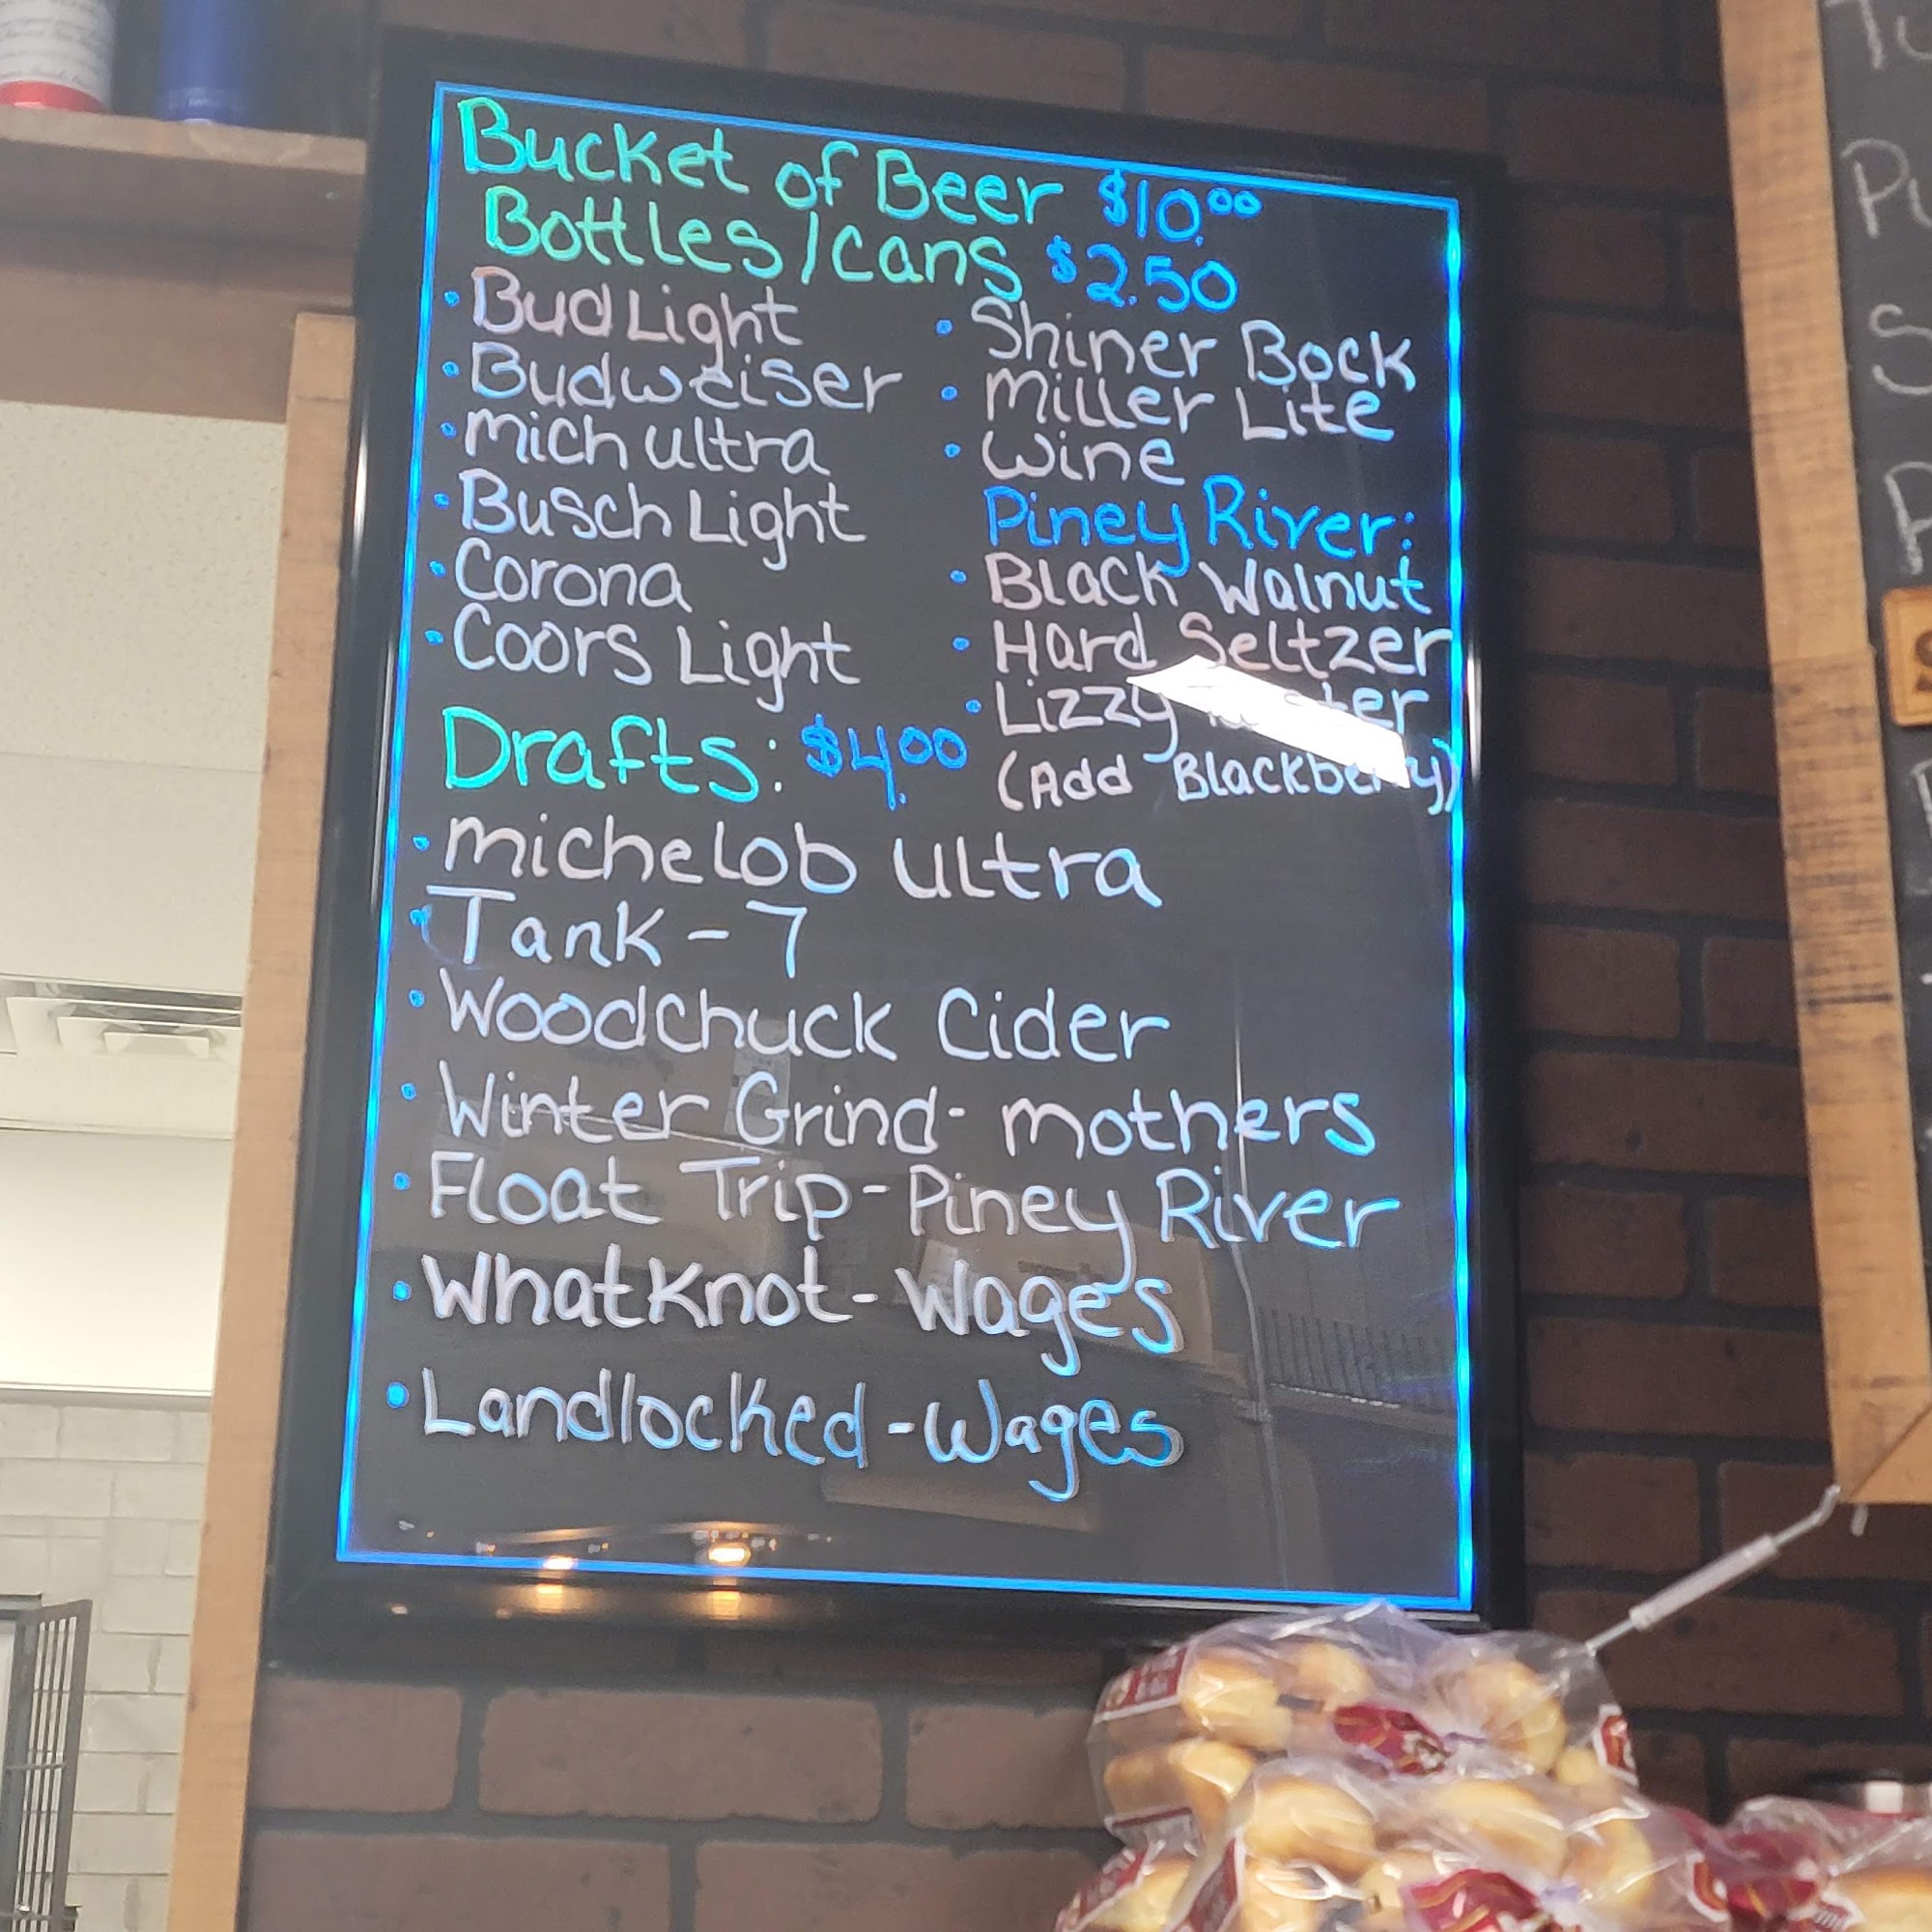 Bucket of Beer $10.00
Bottles/cans $2.50
• Bud Light
• Budweiser
• mich ultra
• Busch Light
• Corona
• Coors Light
• Shiner Bock
• Miller Lite
• Wine
Piney River:
• Black Walnut
• Hard Seltzer
• Lizzy
(Add Blackberry)
Drafts: $4.00
• michelob ultra
• Tank-7
• Woodchuck Cider
• Winter Grind- mothers
• Float Trip-Piney River
• WhatKnot-Wages
• Landlocked-Wages